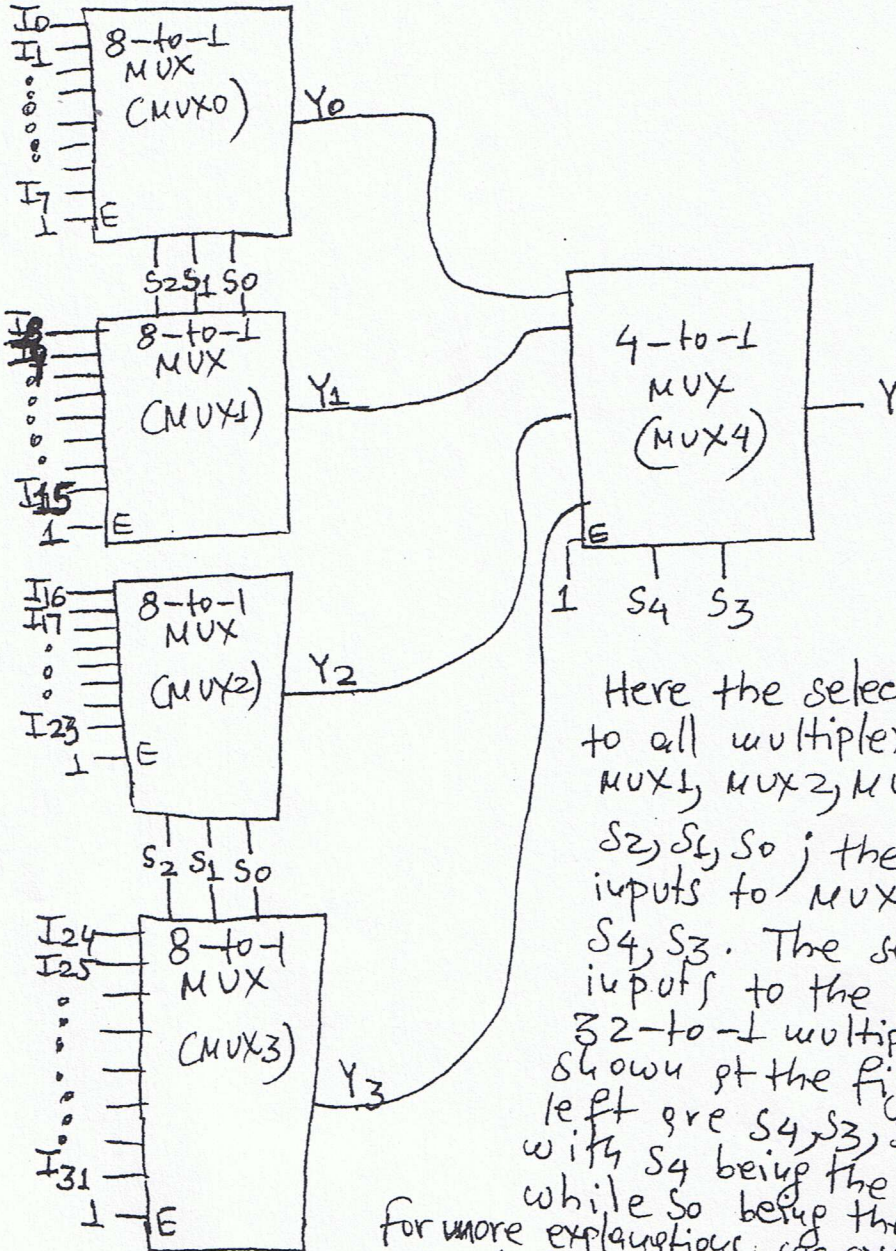 I0
I1
I7
1 E
8-to-1
MUX
(MUX0)
Y0
S2 S1 S0
I15
1 E
8-to-1
MUX
(MUX1)
Y1
I16
I17
I23
1 E
8-to-1
MUX
(MUX2)
Y2
S2 S1 S0
I24
I25
I31
1 E
8-to-1
MUX
(MUX3)
Y3
4-to-1
MUX
(MUX4)
Y
E
1 S4 S3
Here the selec
to all multiplex
MUX1, MUX2, MU
S2, S1, S0 ; the
inputs to MUX
S4, S3. The se
inputs to the
32-to-1 multip
shown at the fi
left are S4, S3,
with S4 being the
while S0 being the
for more explanations